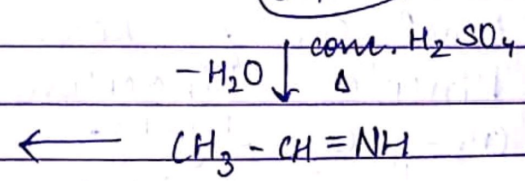 -H₂O ↓ conc. H₂SO₄
Δ
← CH₃ - CH = NH